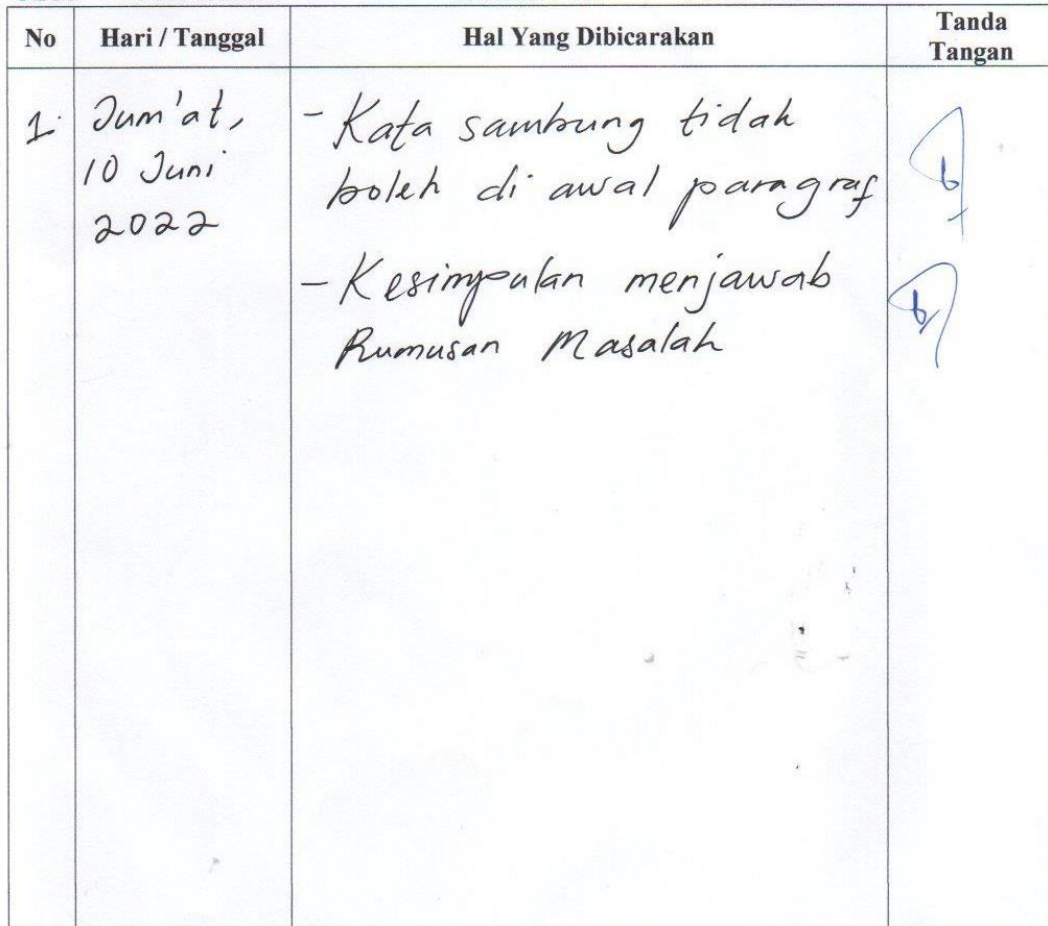 No Hari / Tanggal Hal Yang Dibicarakan Tanda
Tangan
1. Jum'at,
10 Juni
2022
- Kata sambung tidak
boleh di awal paragraf
- Kesimpulan menjawab
Rumusan Masalah